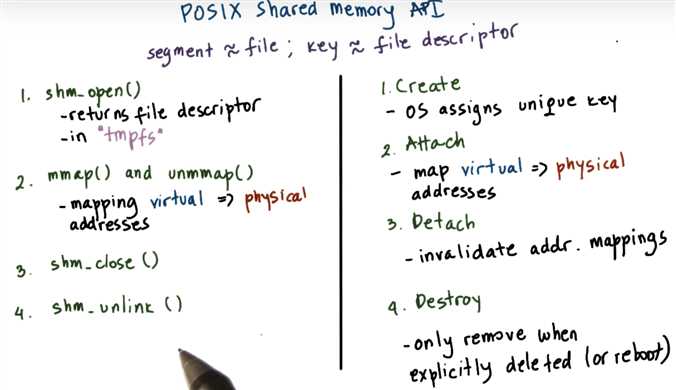 POSIX Shared Memory API
segment ≈ file ; key ≈ file descriptor
1. shm_open()
-returns file descriptor
-in "tmpfs"
2. mmap() and unmmap()
-mapping virtual => physical
addresses
3. shm_close()
4. shm_unlink()
1. Create
- OS assigns unique key
2. Attach
- map virtual => physical
addresses
3. Detach
- invalidate addr. mappings
4. Destroy
- only remove when
explicitly deleted (or reboot)